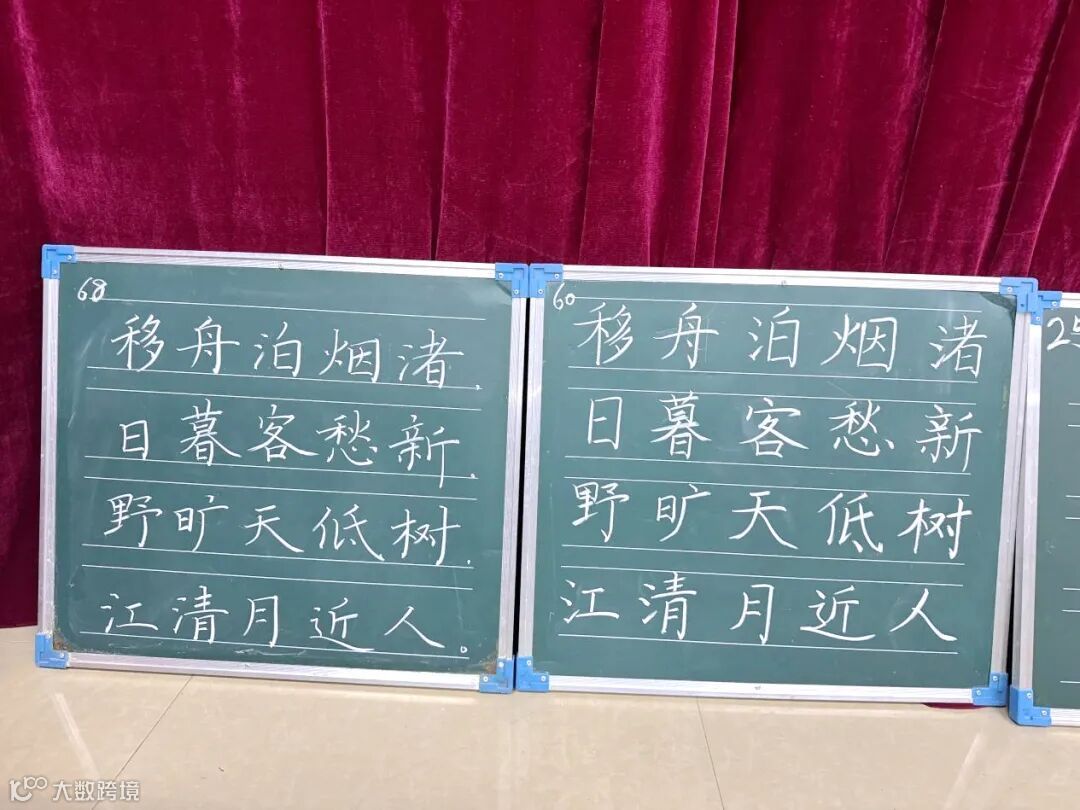 68
移舟泊烟渚,
日暮客愁新.
野旷天低树,
江清月近人。
60
移舟泊烟渚
日暮客愁新
野旷天低树
江清月近人
25
大数跨境